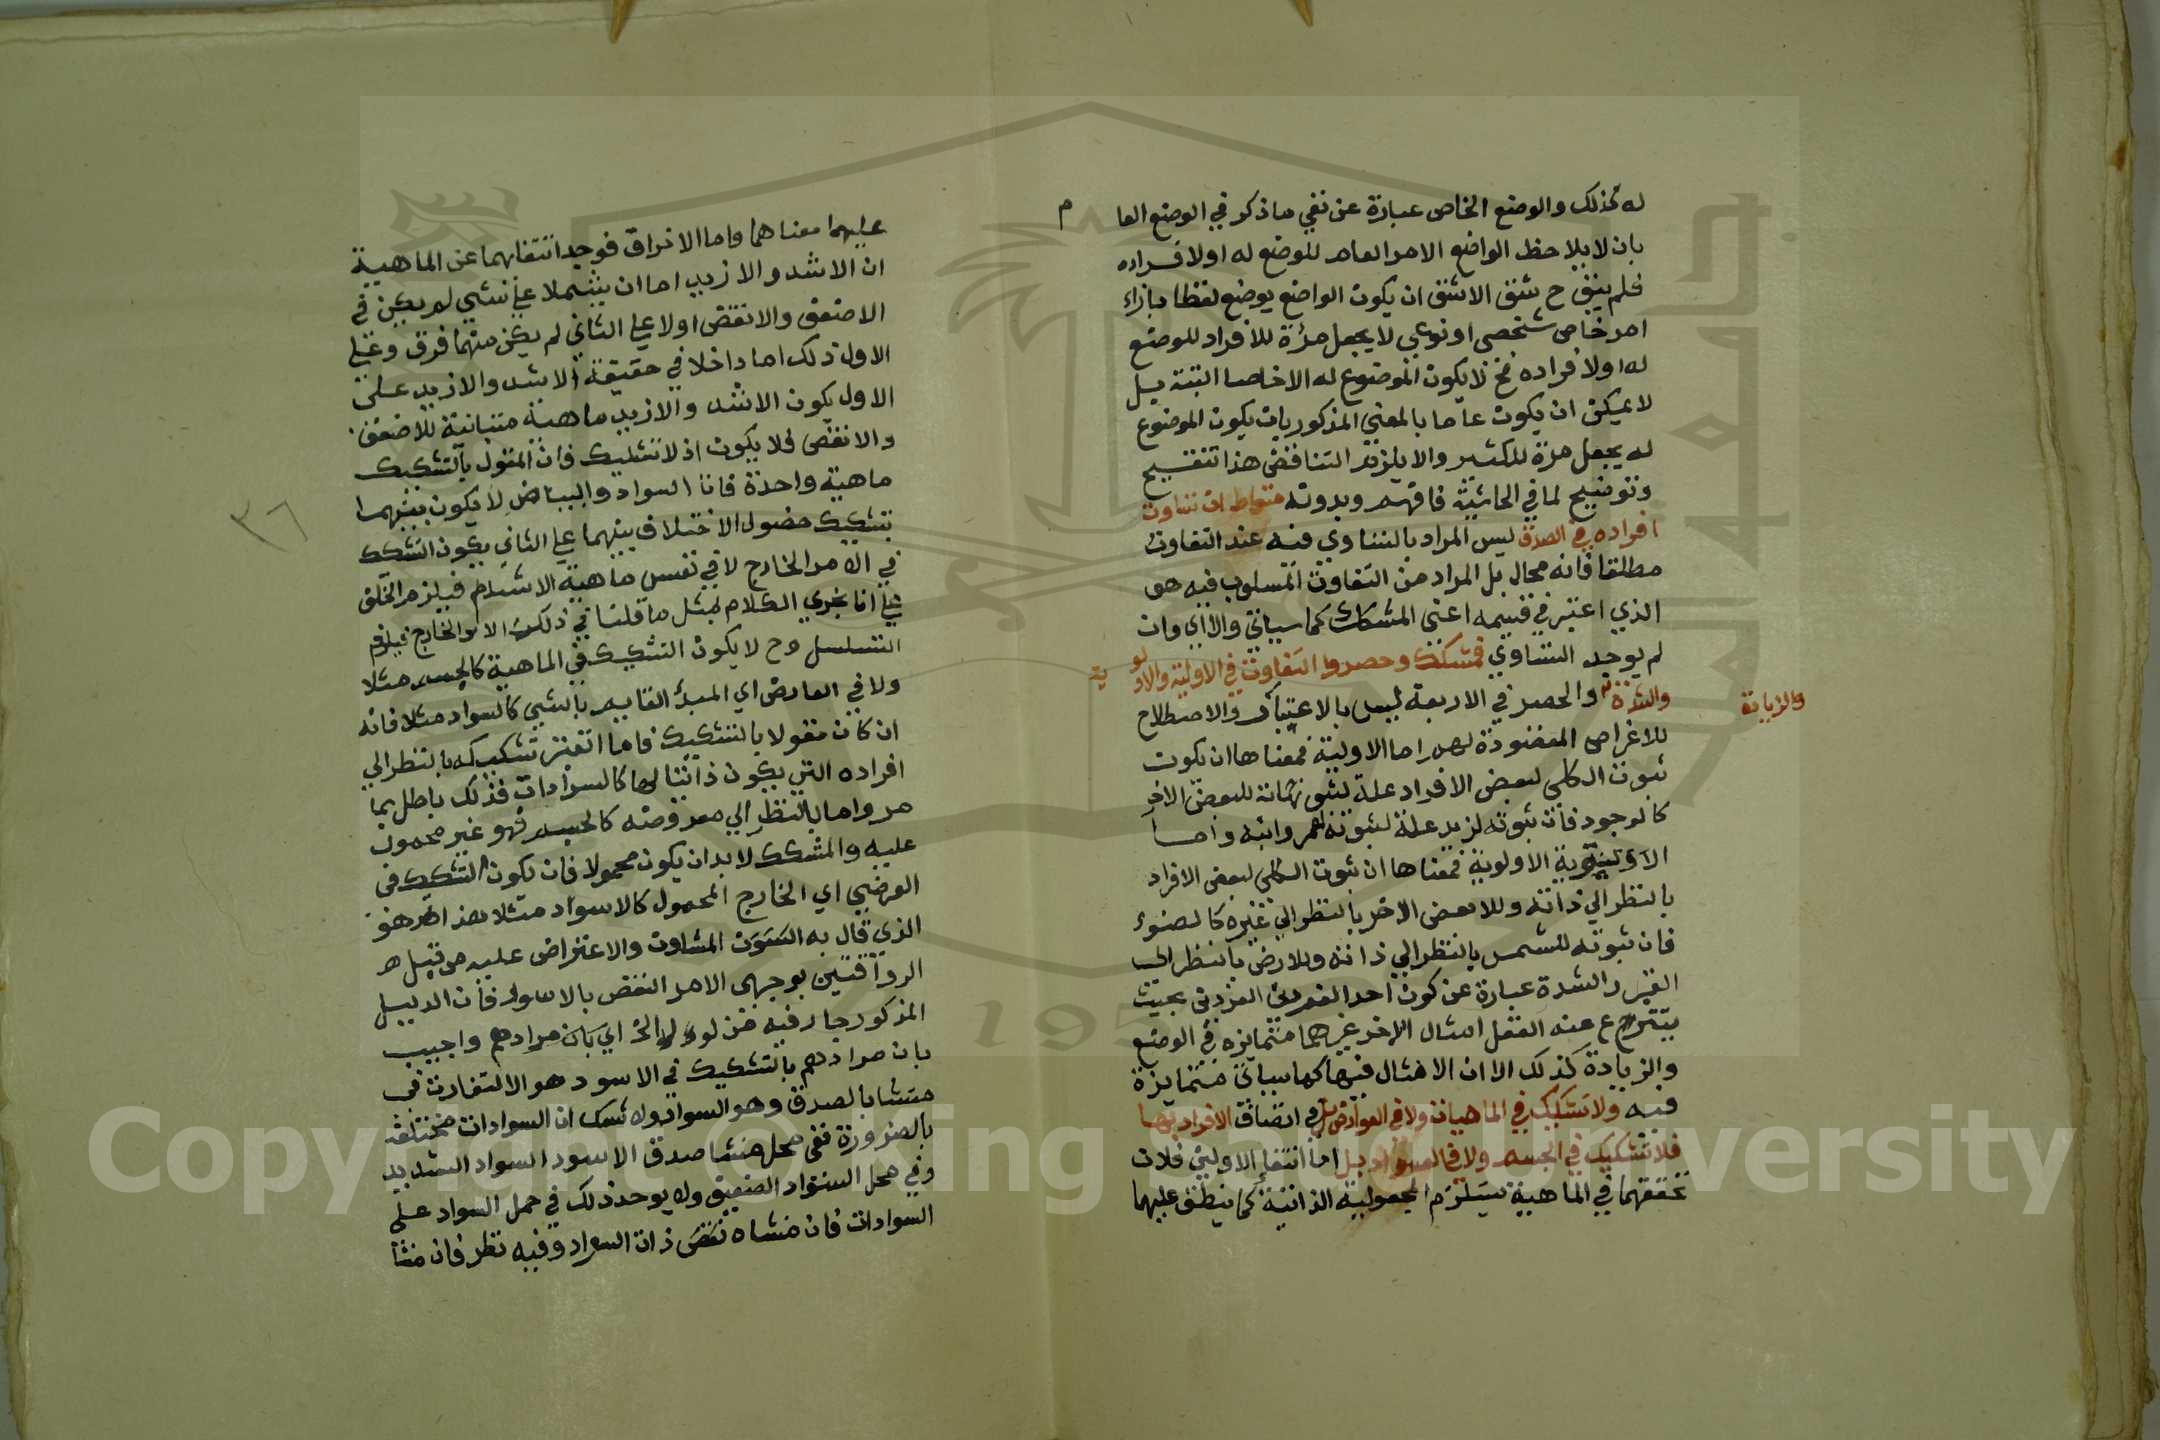 له كذلك والوضع الخاص عبارة عن نفي ما ذكر في الوضع العا م
بان لا يلاحظ الواضع الامر العام للوضع له او لافراده
فلم يبق ح شق الاشق ان يكون الواضع يوضع لفظا بازاء
امر خاص شخصي او نوعي لا يجعل مرأة للافراد للوضع
له او لافراده فح لا يكون الموضوع له الا خاصا البتة بل
لا يمكن ان يكون عاما بالمعني المذكور بان يكون الموضوع
له يجعل مرأة للكثير والا يلزم التناقض هذا تنقيح
وتوضيح لما في الحاشية فافهم وبدونه متواط ان تساوت
افراده في الصدق ليس المراد بالتساوي فيه عند التفاوت
مطلقا فانه محال بل المراد من التفاوت المسلوب فيه هو
الذي اعتبر في قسيمه اعني المشكك كما سياتي والا اي وان
لم يوجد التساوي فمشكك وحصروا التفاوت في الاولية والاولوية
والشدة والزيادة والحصر في الاربعة ليس بالاعتبار والاصطلاح
للاغراض المقصودة لهم اما الاولية فمعناها ان يكون
ثبوت الكلي لبعض الافراد علة لثبوته للبعض الاخر
كالوجود فان ثبوته لزيد علة لثبوته لعمر وابنه واما
الاولوية فمعناها ان ثبوت الكلي لبعض الافراد
بالنظر الي ذاته وللبعض الاخر بالنظر الي غيره كالضوء
فان ثبوته للشمس بالنظر الي ذاته وللارض بالنظر الي
الغير والشدة عبارة عن كون احد الفردين بحيث
ينتزع عنه العقل امثال الاخر غير متمايزه في الوضع
والزيادة كذلك الا ان الامثال فيها كما سياتي متمايزة
فيه ولا تشكيك في الماهيات ولا في العوارض بل في اتصاف الافراد بها
فلا تشكيك في الجسم ولا في السواد بل اما انتفاء الاوليين فلان
تحققهما في الماهية يستلزم المجعولية الذاتية كما ينطق عليهما
والزيادة
عليهما معناهما واما الاخراق فوجه انتفايهما عن الماهية
ان الاشد والازيد اما ان يشملا علي شي لم يكن في
الاضعف والانقص اولا علي الثاني لم يكن منهما فرق وعلي
الاول ذلك اما داخلا في حقيقة الاشد والازيد علي
الاول يكون الاشد والازيد ماهية متباينة للاضعف
والانقص فلا يكون اذ لا تشكيك فان المقول بالتشكيك
ماهية واحدة فان السواد والبياض لا يكون بينهما
تشكيك حصول الاختلاف بينهما علي الثاني يكون التشكك
في الامر الخارج لا في نفس ماهية الاشد فيلزم الخلف
علي انا نجري الكلام بمثل ما قلنا في ذلك الامر الخارج فيلزم
التسلسل وح لا يكون التشكيك في الماهية كالجسم مثلا
ولا في العارض اي المبدأ القايم بالشي كالسواد مثلا فانه
ان كان مقولا بالتشكيك فاما اتعتبر تشككه بالنظر الي
افراده التي يكون ذاتيا لها كالسوادات فذلك باطل بما
مر واما بالنظر الي معروضه كالجسم فهو غير محمول
عليه والمشكك لا بد ان يكون محمولا فان يكون التشكيك في
العرضي اي الخارج المحمول كالاسواد مثلا هذا هو
الذي قال به المشاون والاعتراض عليه من قبل
الرواقيين بوجهي الامر النقض بالاسود فان الدليل
المذكور جار فيه اي بان مرادهم واجيب
بان مرادهم بالتشكيك في الاسود هو الالتفاوت في
منشا بالصدق وهو السواد ولا شك ان السوادات مختلفة
بالضرورة ففي محل منشا صدق الاسود السواد الشديد
وفي محل السواد الضعيف ولا يوجد ذلك في حمل السواد علي
السوادات فان منشاه نقص ذات السواد وفيه نظر فان منشا
٣٦